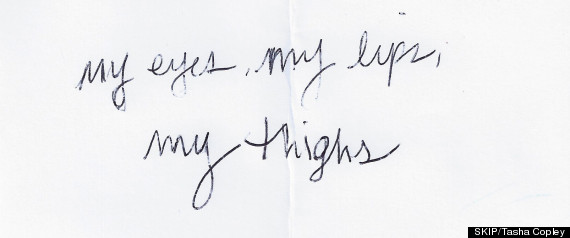 my eyes, my lips,
my thighs
SKIP/Tasha Copley